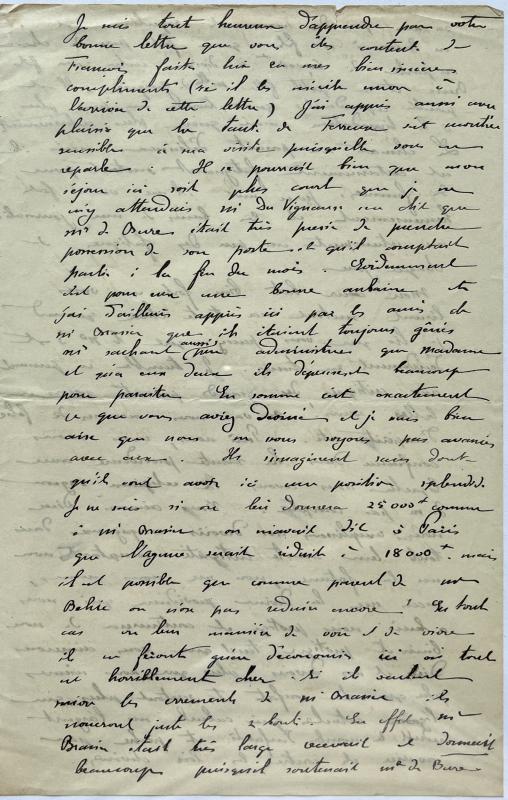 Je suis tout heureux d'apprendre par votre
bonne lettre que vous êtes content de
François faites lui en mes bien sincères
compliments (si il les mérite encore à
l'arrivée de cette lettre) J'ai appris aussi avec
plaisir que la tante de s'est montrée
sensible à ma visite puisqu'elle vous en
reparle. Il se pourrait bien que mon
séjour ici soit plus court que je ne
m'y attendais mr Du Vignaux m'a dit que
mr de Bure était très pressé de prendre
possession de son poste et qu'il comptait
partir à la fin du mois. Evidemment
c'est pour eux une bonne aubaine et
j'ai d'ailleurs appris ici par les amis de
mr Brasier que ils étaient toujours gênés
ne sachant aussi peu administrer que madame
et à eux deux ils dépensent beaucoup
pour paraître. En somme c'est exactement
ce que vous aviez deviné et je suis bien
aise que nous ne nous soyons pas avancés
avec eux. Ils s'imaginent sans doute
qu'ils vont avoir ici une position splendide.
Je ne sais si on leur donnera 25 000f comme
à mr Brasier on m'avait dit à Paris
que l'agence serait réduit à 18 000f. mais
il est possible que comme parent de mr
on n'ose pas réduire encore! En tout
cas vu leur manière de voir et de vivre
il ne feront guère d'économies ici où tout
est horriblement cher. si ils veulent
suivre les errements de mr Brasier ils
noueront juste les 2 bouts. En effet mr
Brasier était très large recevait et donnait
beaucoup puisqu'il soutenait me de Bure